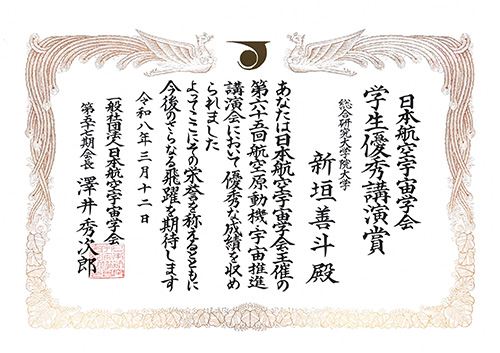 日本航空宇宙学会
学生優秀講演賞
総合研究大学院大学
新垣善斗殿
あなたは日本航空宇宙学会主催の
第六十五回航空原動機・宇宙推進
講演会において優秀な成績を収め
られました
よってここにその栄誉を称えるとともに
今後のさらなる飛躍を期待します
令和八年三月十二日
一般社団法人日本航空宇宙学会
第五十七期会長 澤井秀次郎